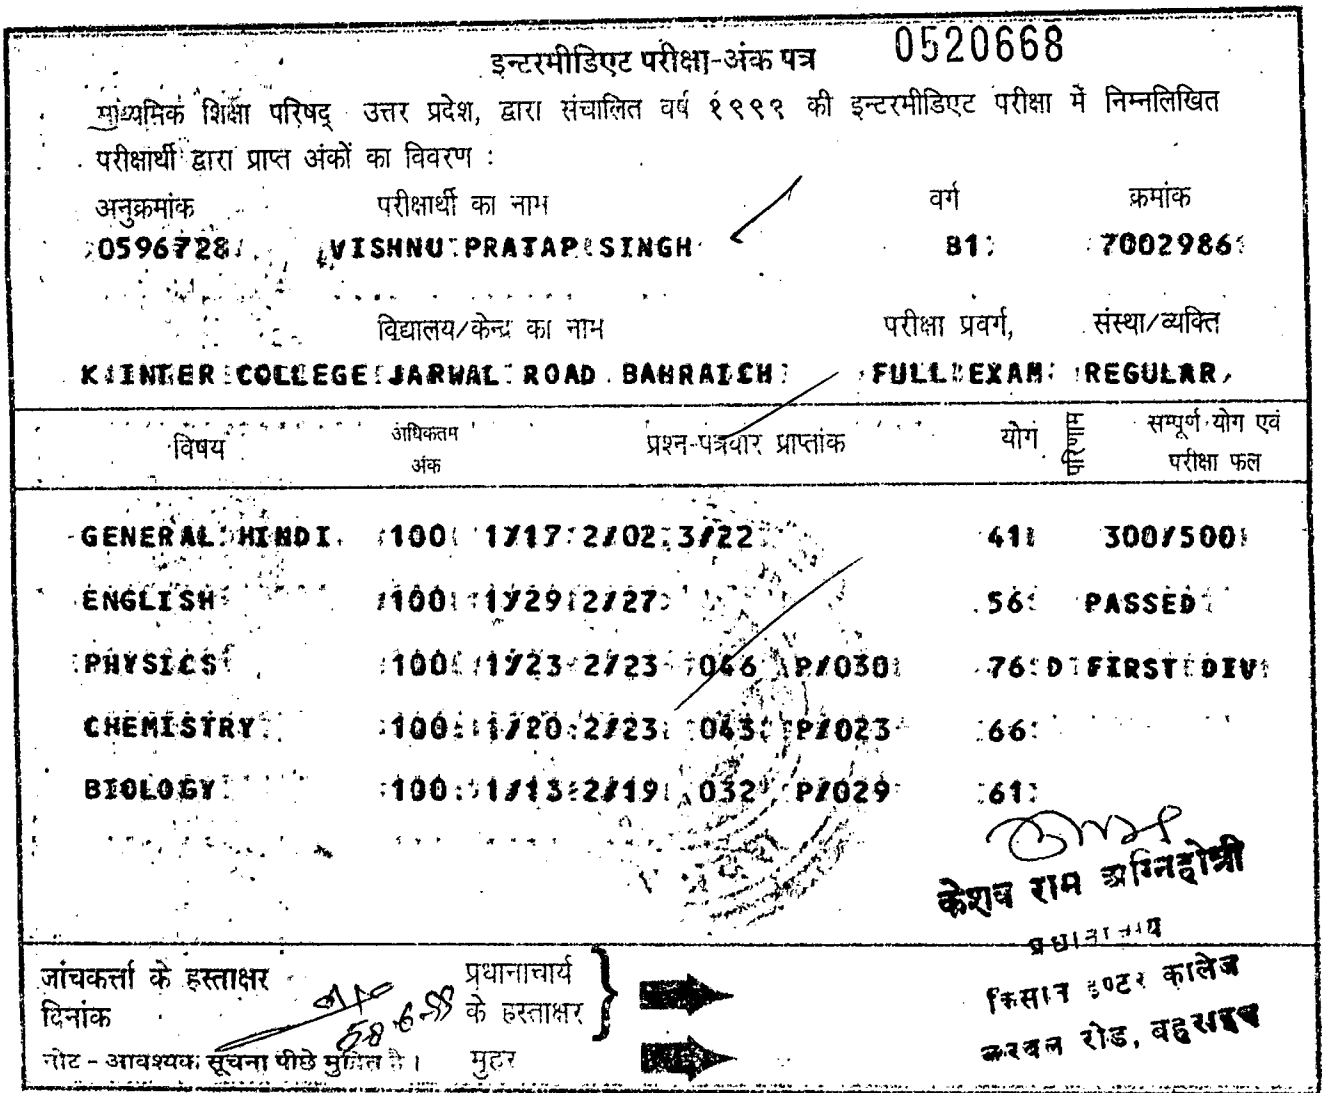 इन्टरमीडिएट परीक्षा-अंक पत्र 0520668
माध्यमिक शिक्षा परिषद् उत्तर प्रदेश, द्वारा संचालित वर्ष १९९९ की इन्टरमीडिएट परीक्षा में निम्नलिखित
परीक्षार्थी द्वारा प्राप्त अंकों का विवरण :
अनुक्रमांक परीक्षार्थी का नाम वर्ग क्रमांक
0596728 VISHNU PRATAP SINGH B1 7002986
विद्यालय/केन्द्र का नाम परीक्षा प्रवर्ग, संस्था/व्यक्ति
K INTER COLLEGE JARWAL ROAD BAHRAICH FULL EXAM REGULAR
विषय अधिकतम अंक प्रश्न-पत्रवार प्राप्तांक योग परिणाम सम्पूर्ण योग एवं परीक्षा फल
GENERAL HINDI 100 1/17 2/02 3/22 41 300/500
ENGLISH 100 1/29 2/27 56 PASSED
PHYSICS 100 1/23 2/23 046 P/030 76 D FIRST DIV
CHEMISTRY 100 1/20 2/23 043 P/023 66
BIOLOGY 100 1/13 2/19 032 P/029 61
केशव राम अग्निहोत्री
प्रधानाचार्य
जांचकर्त्ता के हस्ताक्षर प्रधानाचार्य
दिनांक के हस्ताक्षर
किसान इण्टर कालेज
नोट - आवश्यक सूचना पीछे मुद्रित है। मुहर
जरवल रोड, बहराइच